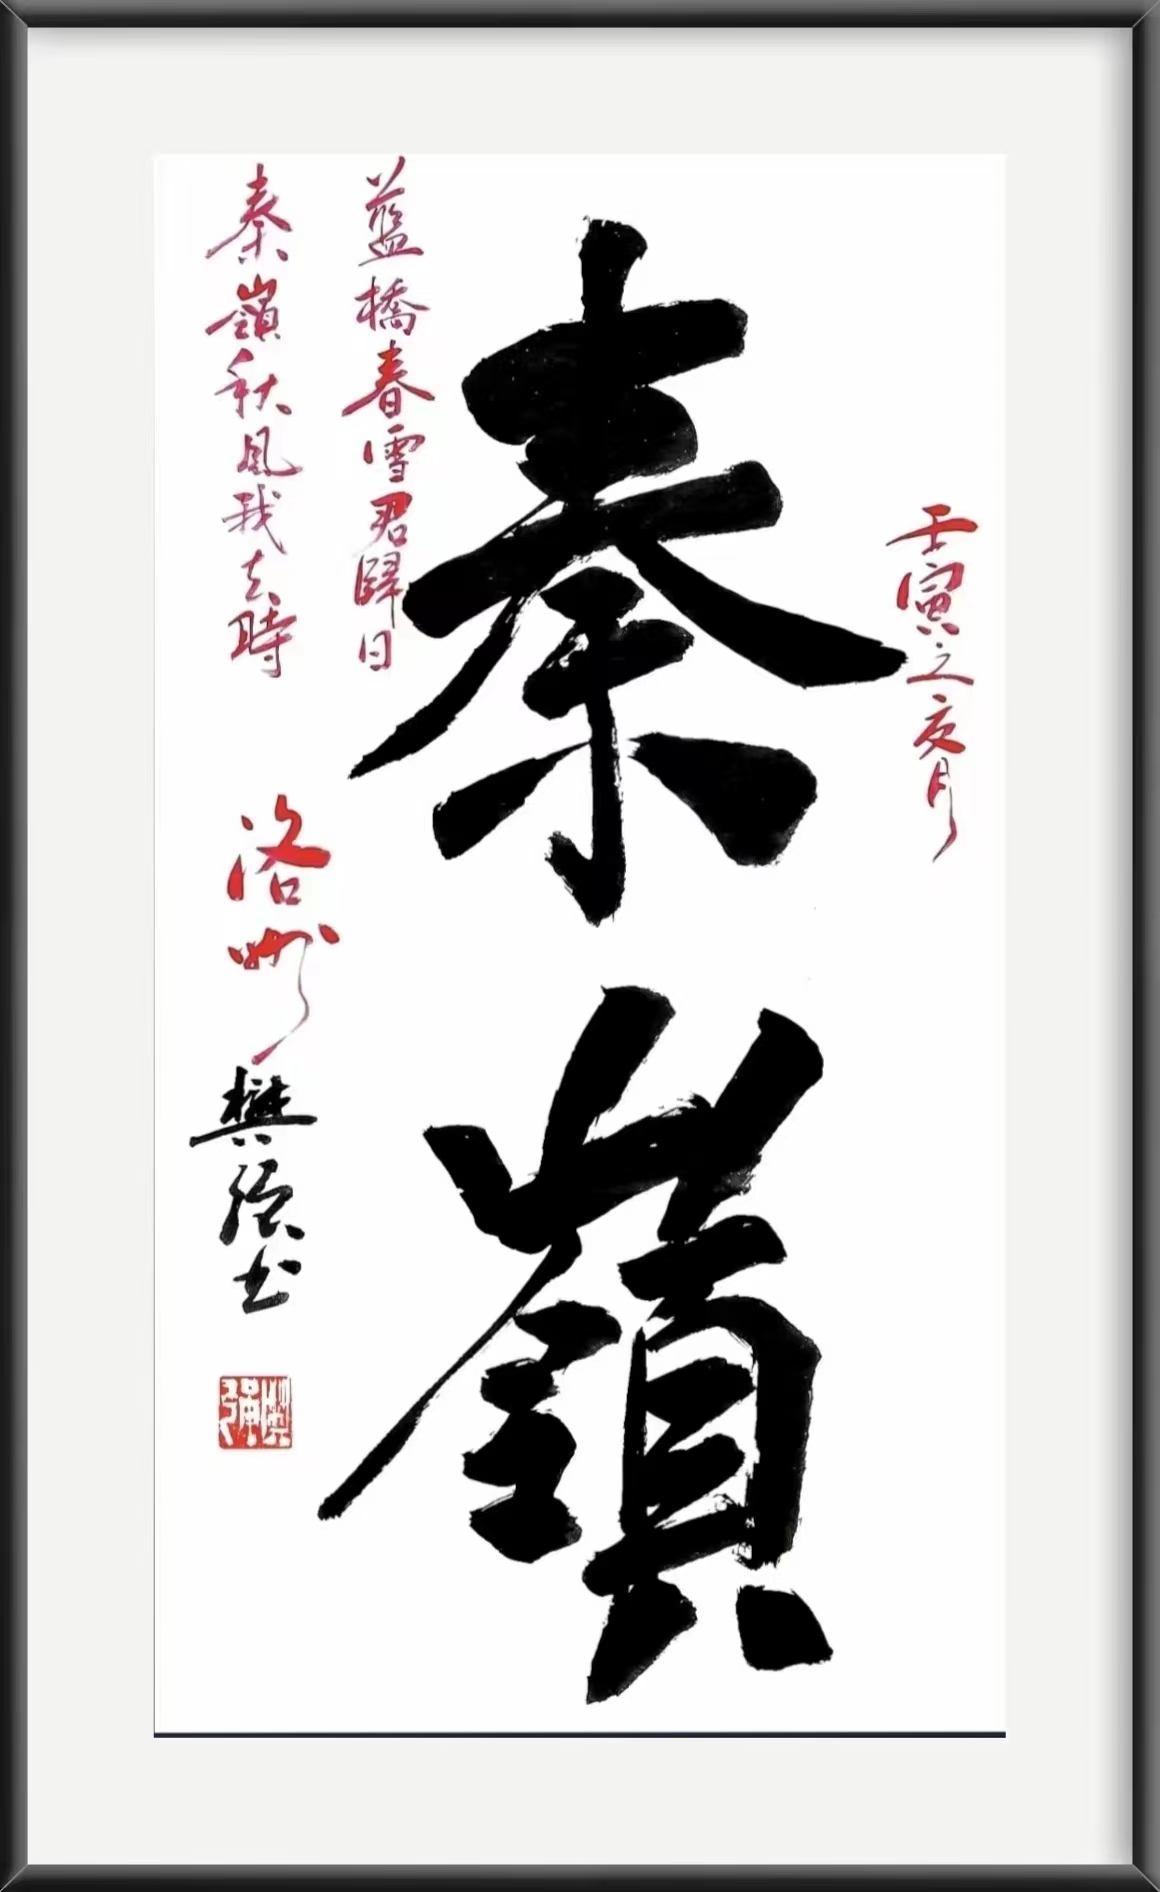 壬寅之亥月
秦嶺
藍橋春雪君歸日
秦嶺秋風我去時
洛州
樊強書
樊強